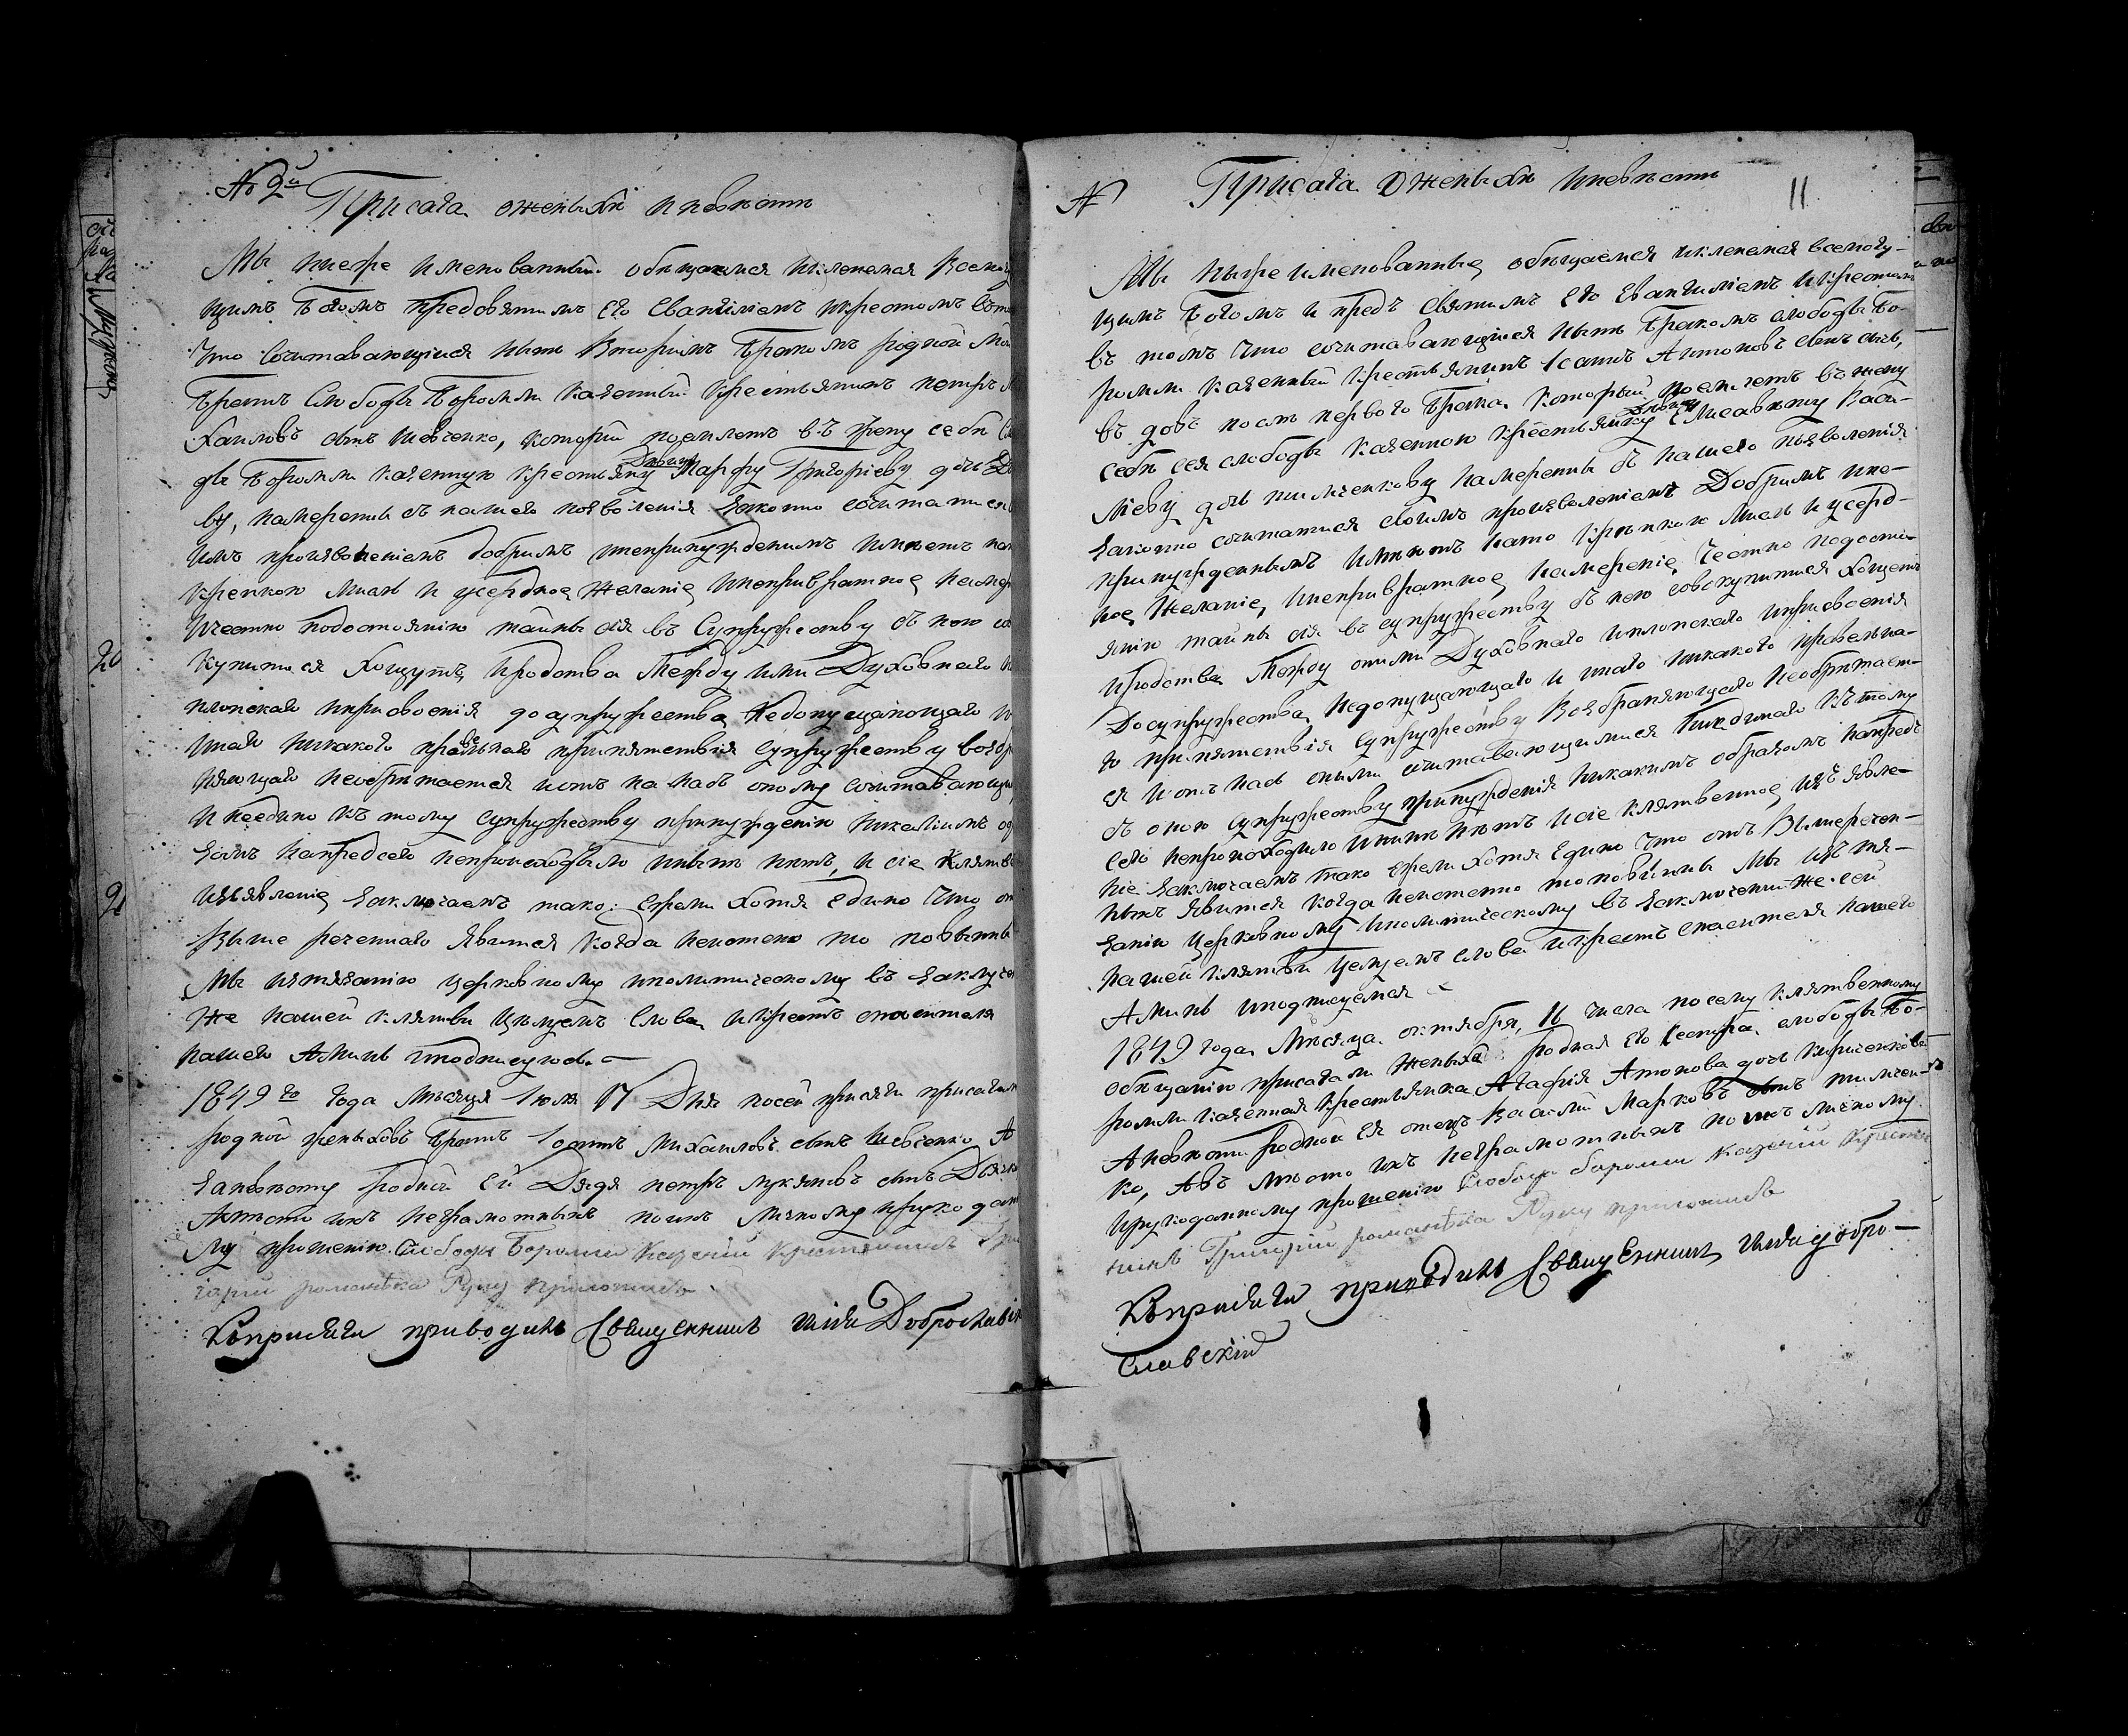 № 9й
Присага ожениху и невести
Мы ниже имепованныи обещаемся и кленемся Всемогу
щимъ Богомъ предсвятимъ Его Евангилиемъ и крестомъ въ то
Что сочитавающiися ныне вторимъ Бракомъ родной мой
Братъ Слободы Боромли казенный крестьянинъ Петръ
Хаиловъ сынъ Шевченко, который поемлетъ въ жену себе
ды Боромли казенную крестьянку Девицу Марфу Григорiеву дочь
ву, намерены съ нашего позволенiя законно сочитатися
имъ произволенiемъ добримъ и непринужденимъ имеетъ на
крепкою мисль и усердное желанiе и непривратное намер
и честно подостоянiю тайны сiя въ супружеству съ нею со
купится хощутъ, и родства между ими Духовнаго
плотскаго и присвоенiя до супружества недопущающаго и
инаго никакого правельнаго припятствiя супружеству возбр
няющаго необритается и отъ на насъ оному сочитавающи
и неедино къ тому супружеству принужденiю никакимъ об
зомъ напредсего непроисходыло и ныне нетъ, и сiе клятве
изъявленiе заключаемъ тако: ежели хотя едино что от
выше реченнаго явится когда неистено то повынны
мы изтязанiю церковному и политическому въ заключе
же нашей клятви целуемъ слова и крестъ спасителя
нашего Аминь и подписуюсь. —
1849го года месяця июля 17 дня посей присяги присагали
родной жениховъ братъ Iоаннъ Михаиловъ сынъ Шевченко, А
за невесту родной ей Дядя Петръ Лукяновъ сынъ
А вместо ихъ неграмотныхъ по ихъ личному и рукодан
му прошенiю Слободы Боромли Казенiй Крестянинъ Гри
горiй романенка Руку приложилъ
Къ присяги приводилъ Священникъ Илiя Доброславскi
№ Присага ожениху и невести 11
Мы ниже имепованные обещаемся и кленемся всемогу-
щимъ Богомъ и предъ святимъ Его Евангилиемъ и крестомъ
въ томъ что сочитавающiися ныне Бракомъ слободы Бо-
ромли казенный крестьянинъ Iоаннъ Антоновъ сынъ
въ довъ после первого брака который поемлетъ въ жену
себе сея слободы казенною крестьянку Девицу Елисавету Васи-
лiеву дочь Пилипенкову намерены съ нашего позволенiя
законно сочитатися своимъ произволенiемъ Добримъ и не-
принужденнымъ имеютъ нато крепкою мисль и усерд-
ное желанiе, и непривратное намеренiе честно подосто-
янiю тайны сiя въ супружеству съ нею совокупитися хощетъ
и родства между оними Духовнаго и плотскаго и присвоенiя
До супружества недопущающаго и инаго никакого правельна-
го припятствiя супружеству возбраняющаго необритает-
ся и отъ насъ онымъ сочитавающимися никдинаго къ тому
съ оною супружеству принужденiя никакимъ образомъ напредъ
сего непроисходило и ныне нетъ и сiе клятвенное изъ явле-
нiе заключаемъ тако ежели хотя едино что отъ вишеречен-
ныхъ явится когда неистенно то повынны мы изъ тя-
занiю церковному и политическому въ заключенiи же сей
нашей клятви целуемъ слова и крестъ спасителя нашего
Аминь и подписуемся
1849 года месяца октября, 16 числа посему клятвенному
обещанiю присагали жениха родная Его сестра, слободы Бо-
ромли казенная крестьянка Агафiя Антонова дочь
А невести родной ея отецъ Василiй Марковъ сынъ Пилипен-
ко, Авъ место ихъ неграмотныхъ по ихъ личному
и рукоданному прошенiю Слободы Боромли Казенiй Крестя
нинъ Григорiй романенка Руку приложилъ
Къ присяги приводилъ Священникъ Илiя Добро-
славскiй